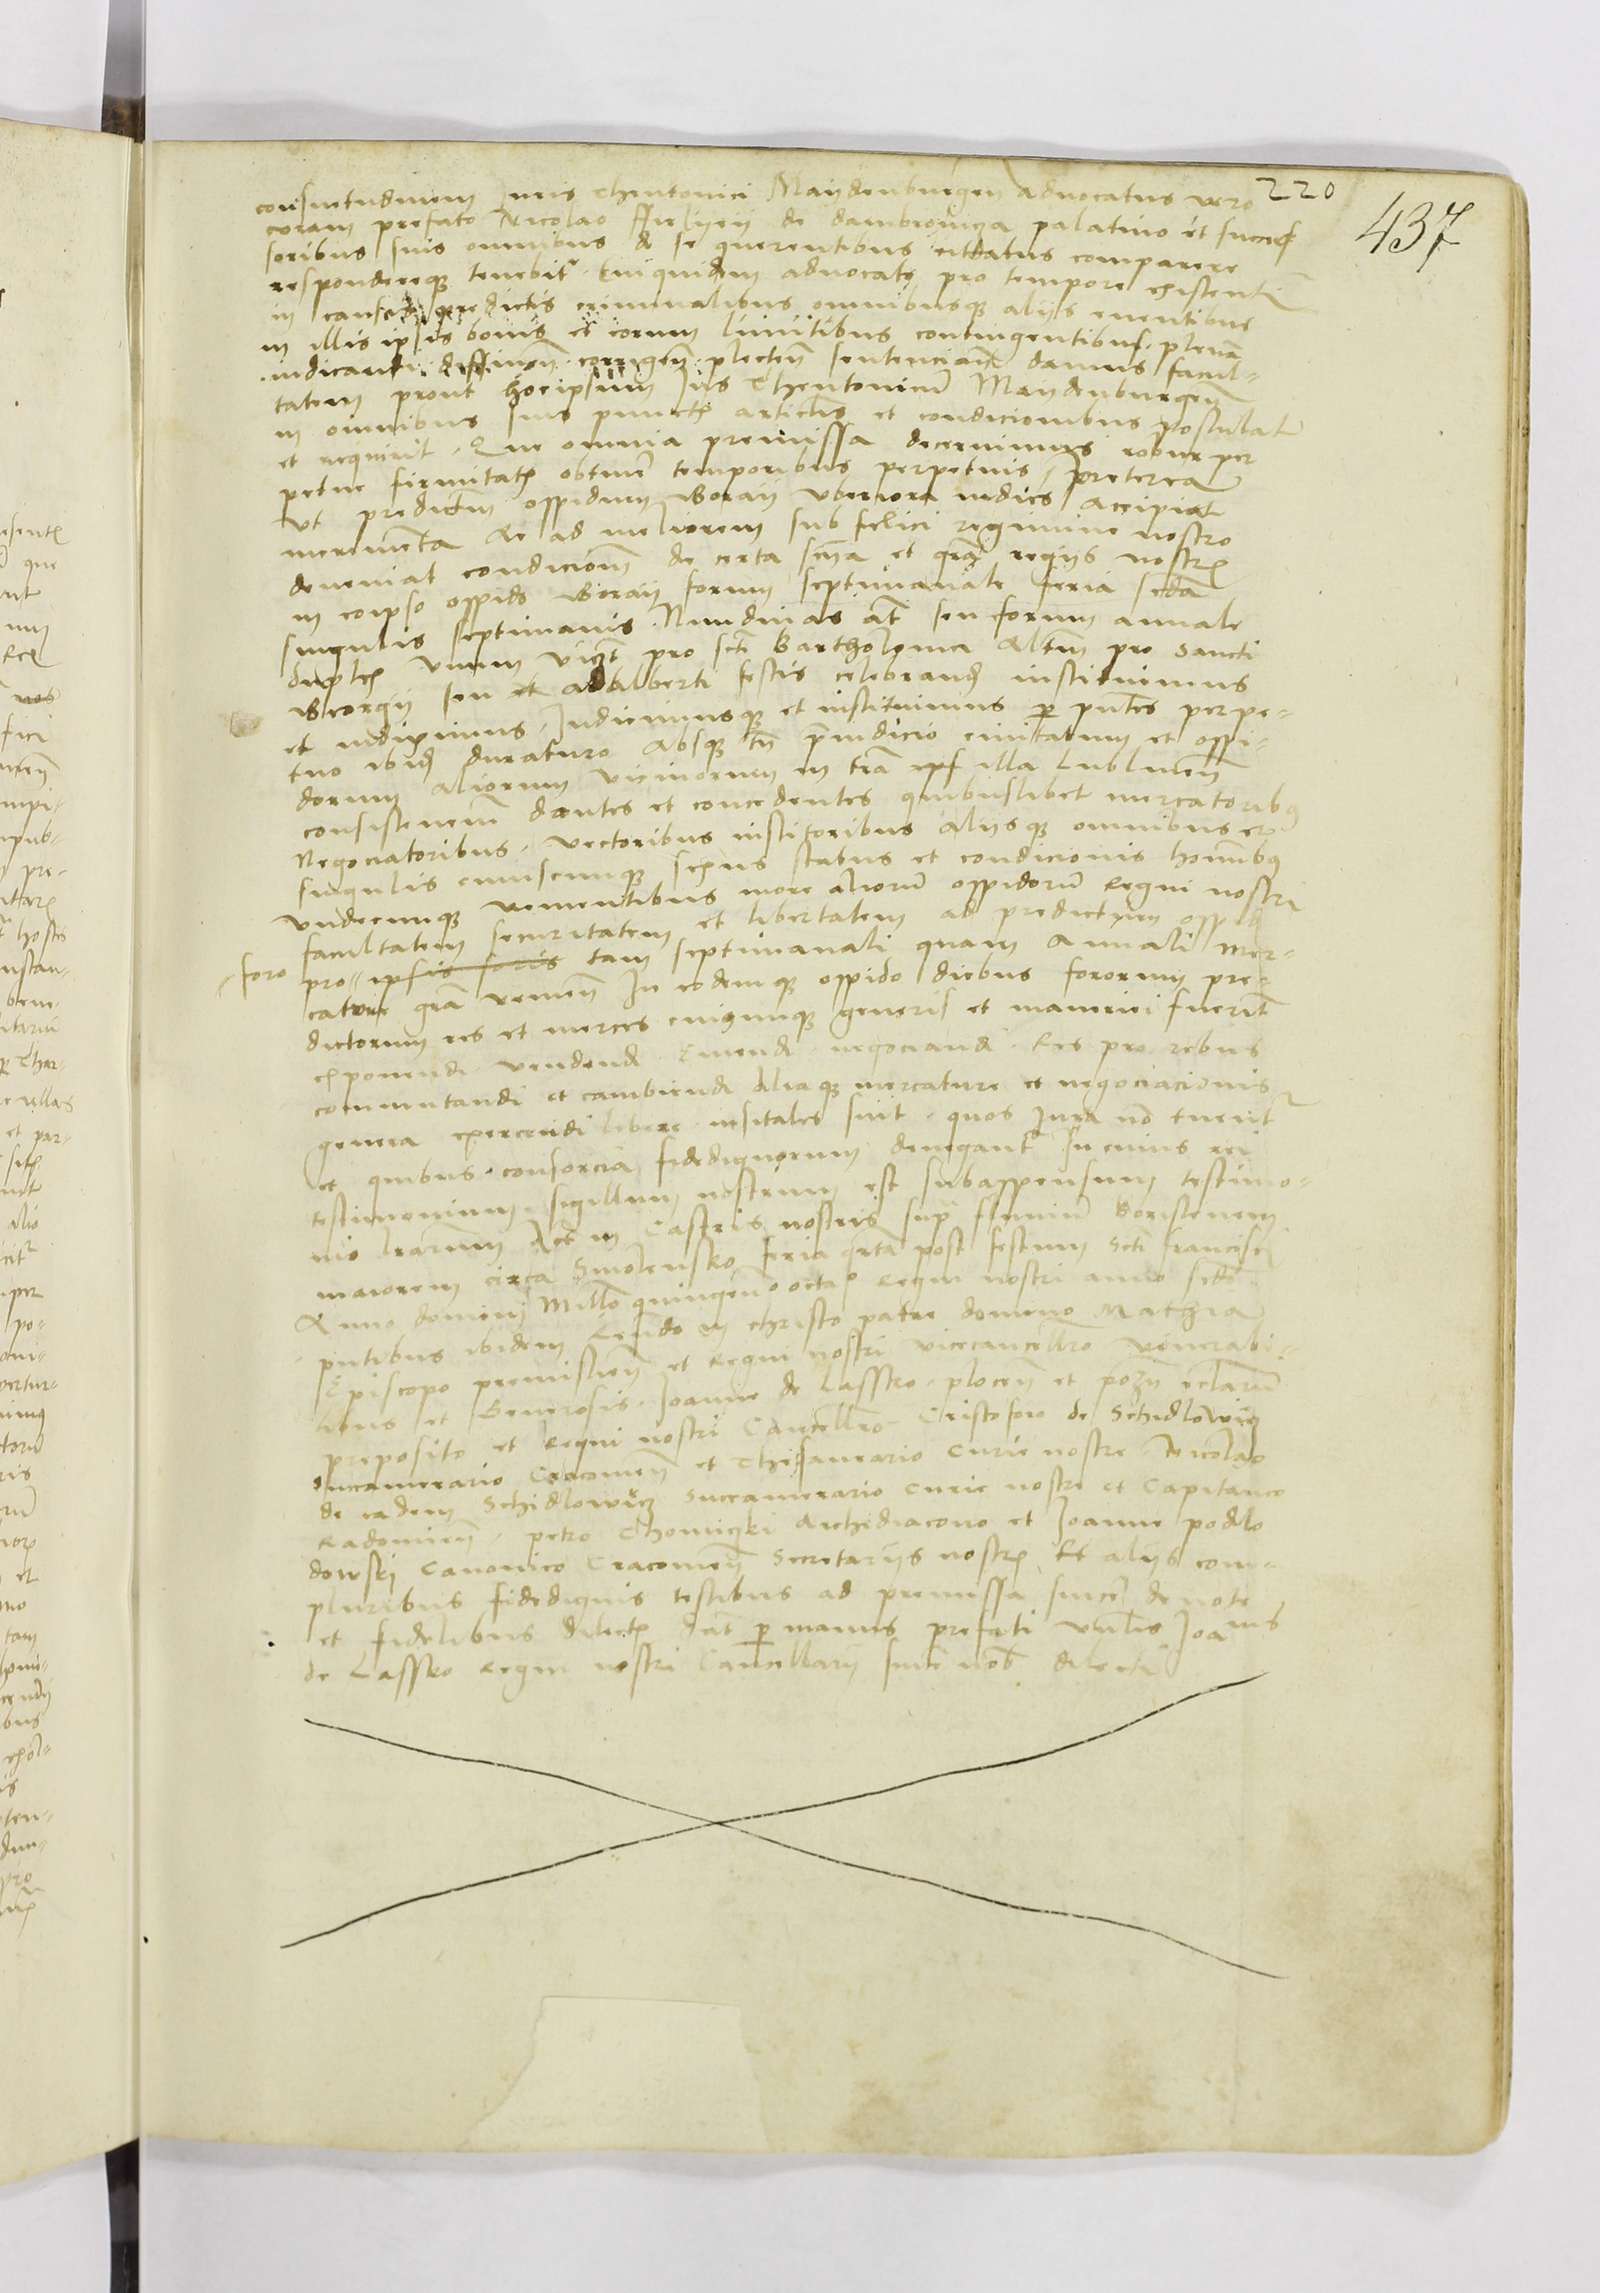 220
437
consuetudinem juris Theutonici Maijdenburgen Advocatus vero
coram prefato Nicolao ffirlijeij de dambrowicza palatino et succes
soribus suis omnibus de se querentibus citatus comparere
respondereq tenebitr Cuiquidem advocato pro tempore existenti
in causis predictis criminalibus omnibusq aliis eventibus
in illis ipsis bonis et eorum limitibus contingentibus plenam
iudicandi diffinien corrigen plecten sentenciandi damus facul-
tatem prout hocipsum Jus Theutonicum Maijdenburgen
in omnibus suis punctis articlis et condicionibus postulat
et requirit. Que omnia premissa decernimus robur per
petue firmitatis obtinere temporibus perpetuis preterea
Vt predictum oppidum Goraij vberiora indies Accipiat
incrementa Ac ad meliorem sub felici regimine nostro
deveniat condicionem de certa scia et gra regijs nostris
in eoipso oppido Goraij forum septimanale feria secda
singulis septimanis. Nundinas at seu forum annale
duplex vnum vicet pro scti Bartholomei Altm pro sancti
Georgij seu et Adalberti festis celebrand instituimus
et indiximus. Indicimusq et instituimus p pntes perpe-
tuo ibid duraturo Absq tn preiudicio civitatum et oppi-
dorum aliorum vicinorum in tra ipsa illa Lublinen
consistenem dantes et concedentes quibuslibet mercatoribus
Negociatoribus. vectoribus institoribus aliisq omnibus et
singulis cuiuscumq sexus status et condicionis hominibus
vndecumq venientibus more aliorum oppidorum Regni nostri
facultatem securitatem et libertatem ad predictum oppid
foro pro ipsis foris tam septimanali quam Annali Mer-
cature gra venien In eodemq oppido diebus fororum pre-
dictorum res et merces cuiuscumq generis et maneriei fuerint
exponendi. vendendi. Emendi. negociandi. Res pro rebus
commutandi et cambiendi aliaq mercature et negociacionis
genera exercendi libere nisi tales sint. quos Jura no tuentr
et quibus. consorcia fidedignorum denegantr In cuius rei
testimonium sigillum nostrum est subappensum testimo-
nio lrarum Act in Castris nostris supr fluvium Boristenem
maiorem circa Smolensko feria qrta post festum scti francisci
Anno domini Millo quingenmo octavo Regni nostri anno scdo
pntibus ibidem Rendo in christo patre domino Mathia
Episcopo premislien et Regni nostri vicecancellro venerabi-
libus et Generosis. Joanne de Lassko. plocen et pozn ecclarum
preposito et Regni nostri Cancellro Cristoforo de Schidlowiecz
succamerario Cracovien et Thesaurario Curie nostre Nicolao
de eadem Schidlowiecz succamerario Curie nostre et Capitaneo
Radomien. petro Thomiczki Archidiacono et Joanne podlo
dowski Canonico Cracovien Secretarijs nostris Et aliis com-
pluribus fidedignis testibus ad premissa sincere devote
et fidelibus dilectis dat p manus prefati venlis Joanis
de Lassko Regni nostri Cancellarij sincere nob dilecti